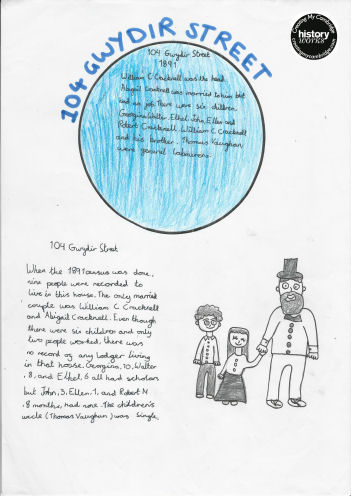 104 GWYDIR STREET
Creating My Cambridge
history
works
104 Gwydir Street
1891
William C Cracknell was the head.
Abigail Cracknell was married to him but
had no job. There were six children.
Georgina, Walter, Ethel, John, Ellen and
Robert Cracknell. William C Cracknell
and his brother, Thomas Vaughan,
were general labourers.
104 Gwydir Street
When the 1891 census was done,
nine people were recorded to
live in this house. The only married
couple was William C Cracknell
and Abigail Cracknell. Even though
there were six children and only
two people worked, there was
no record of any lodger living
in that house. Georgina, 10, Walter
, 8, and Ethel, 6 all had scholars
but John, 3, Ellen, 1, and Robert N
, 8 months, had none. The children's
uncle (Thomas Vaughan) was single.